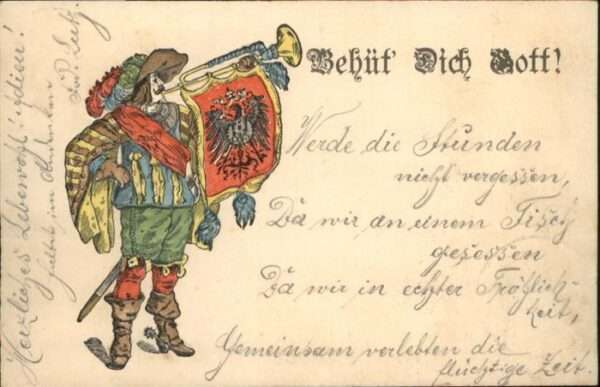 Behüt' Dich Gott!
Werde die Stunden
nicht vergessen,
Da wir an einem Tisch
gesessen
Da wir in echter Fröhlich-
keit,
Gemeinsam verlebten die
flüchtige Zeit.
Herzliches Lebewohl! Adieu!